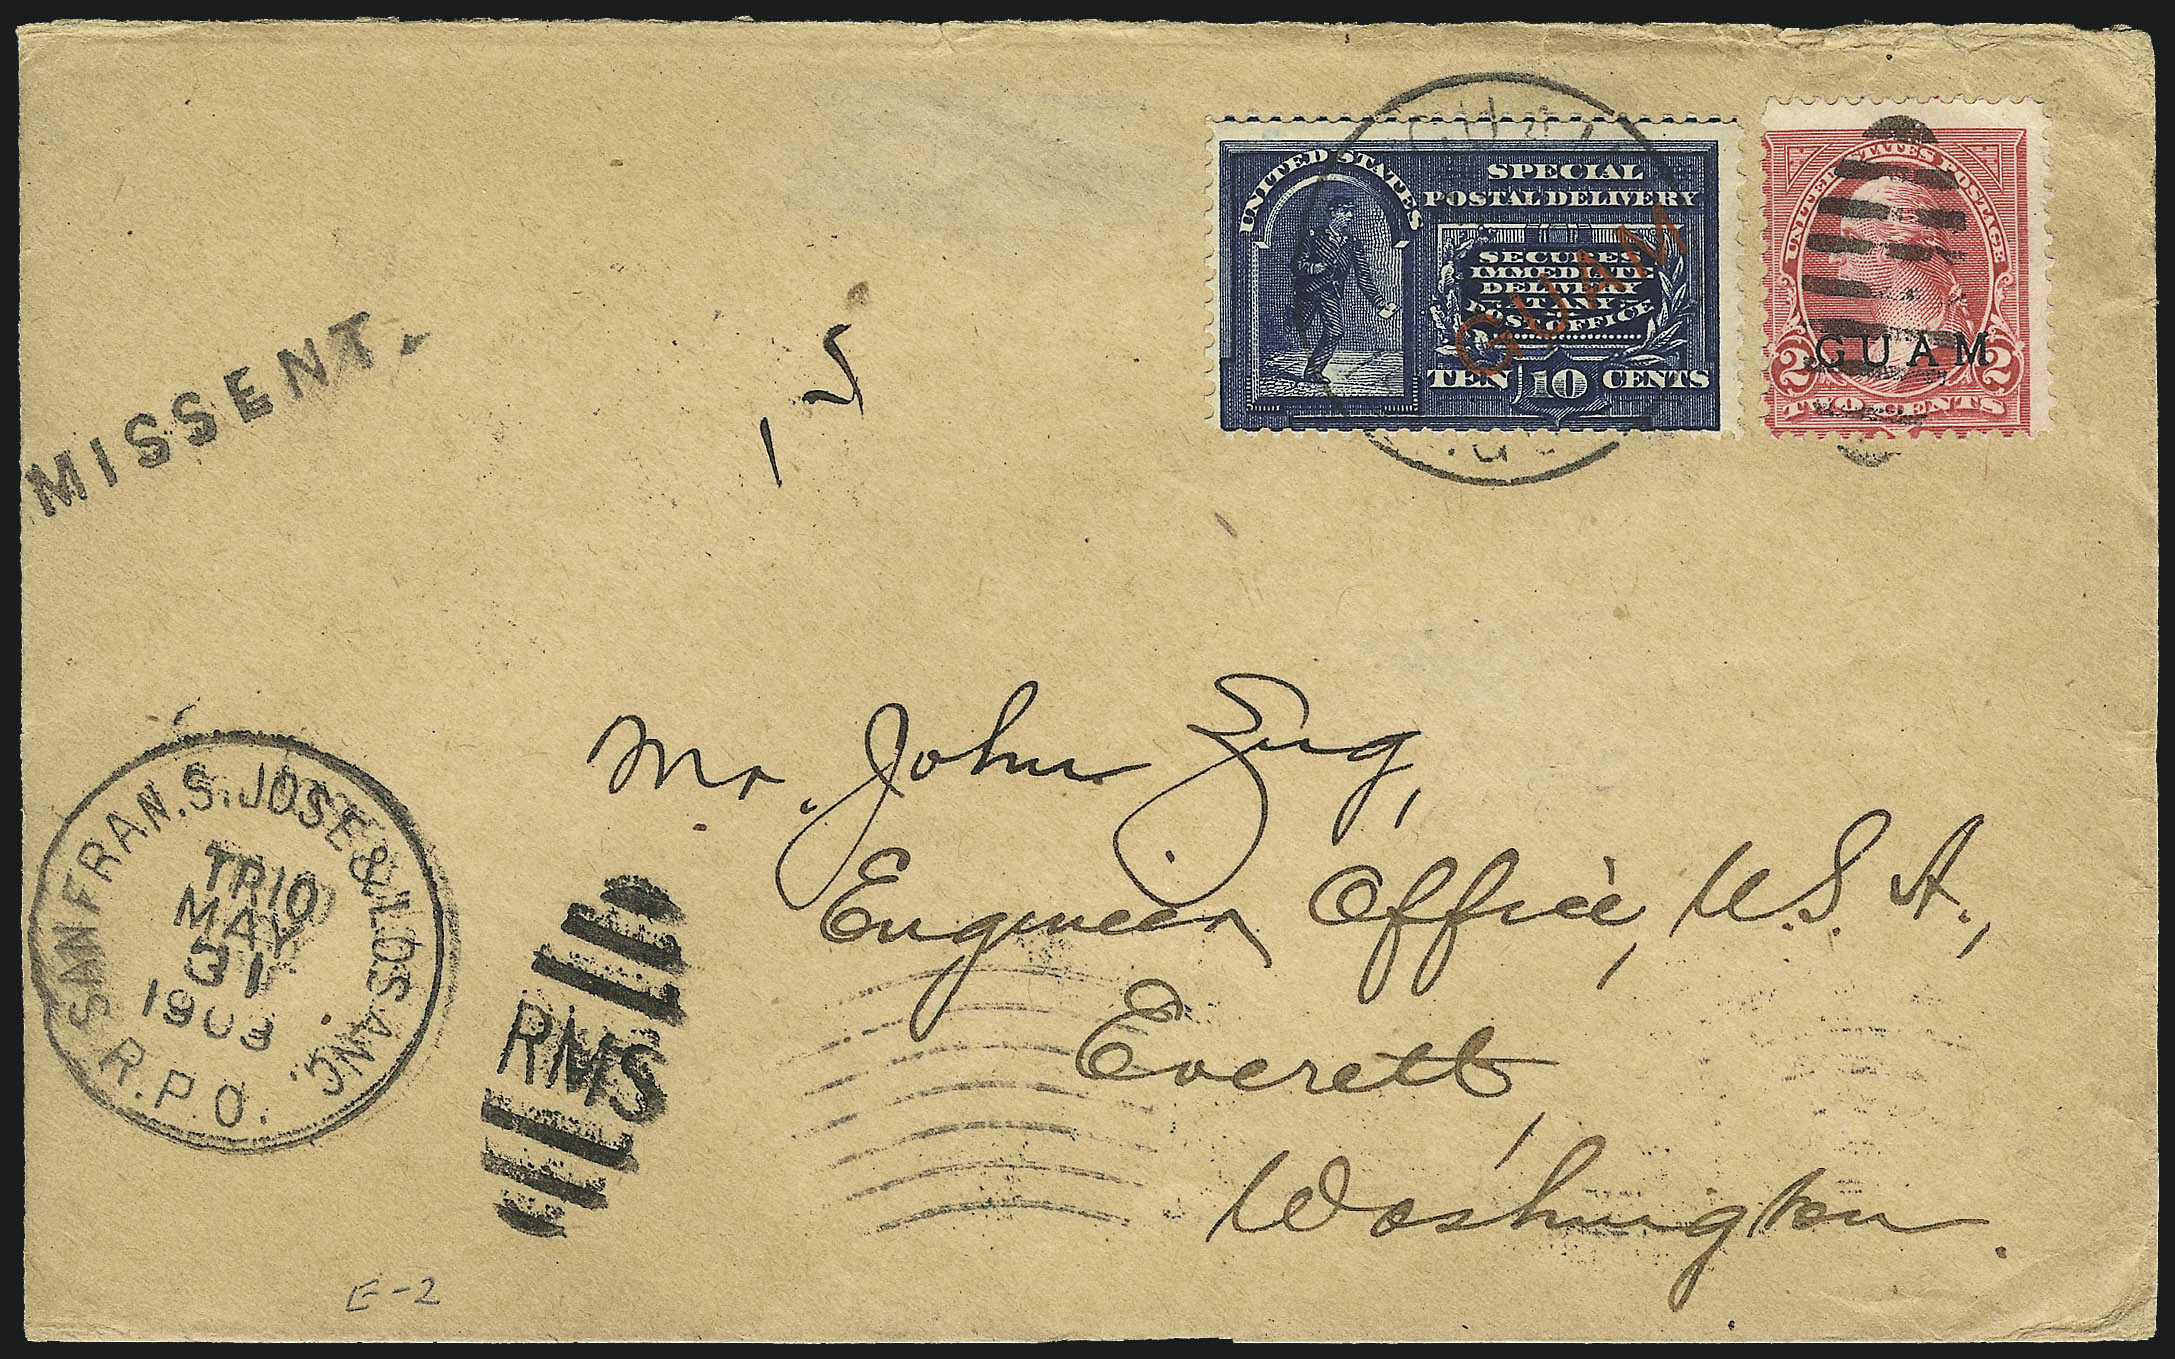 UNITED STATES
SPECIAL
POSTAL DELIVERY
SECURES
IMMEDIATE
DELIVERY
AT ANY
POST OFFICE
TEN 10 CENTS
GUAM
UNITED STATES POSTAGE
GUAM
2 2
TWO CENTS
MISSENT.
15
SAN FRAN. S. JOSE & LOS ANG.
TR 10
MAY
31
1903
R.P.O.
RMS
Mr. John Zug,
Engineer Office, U.S.A.,
Everett,
Washington.
E-2